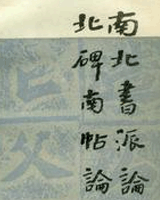 南北書派論
北碑南帖論